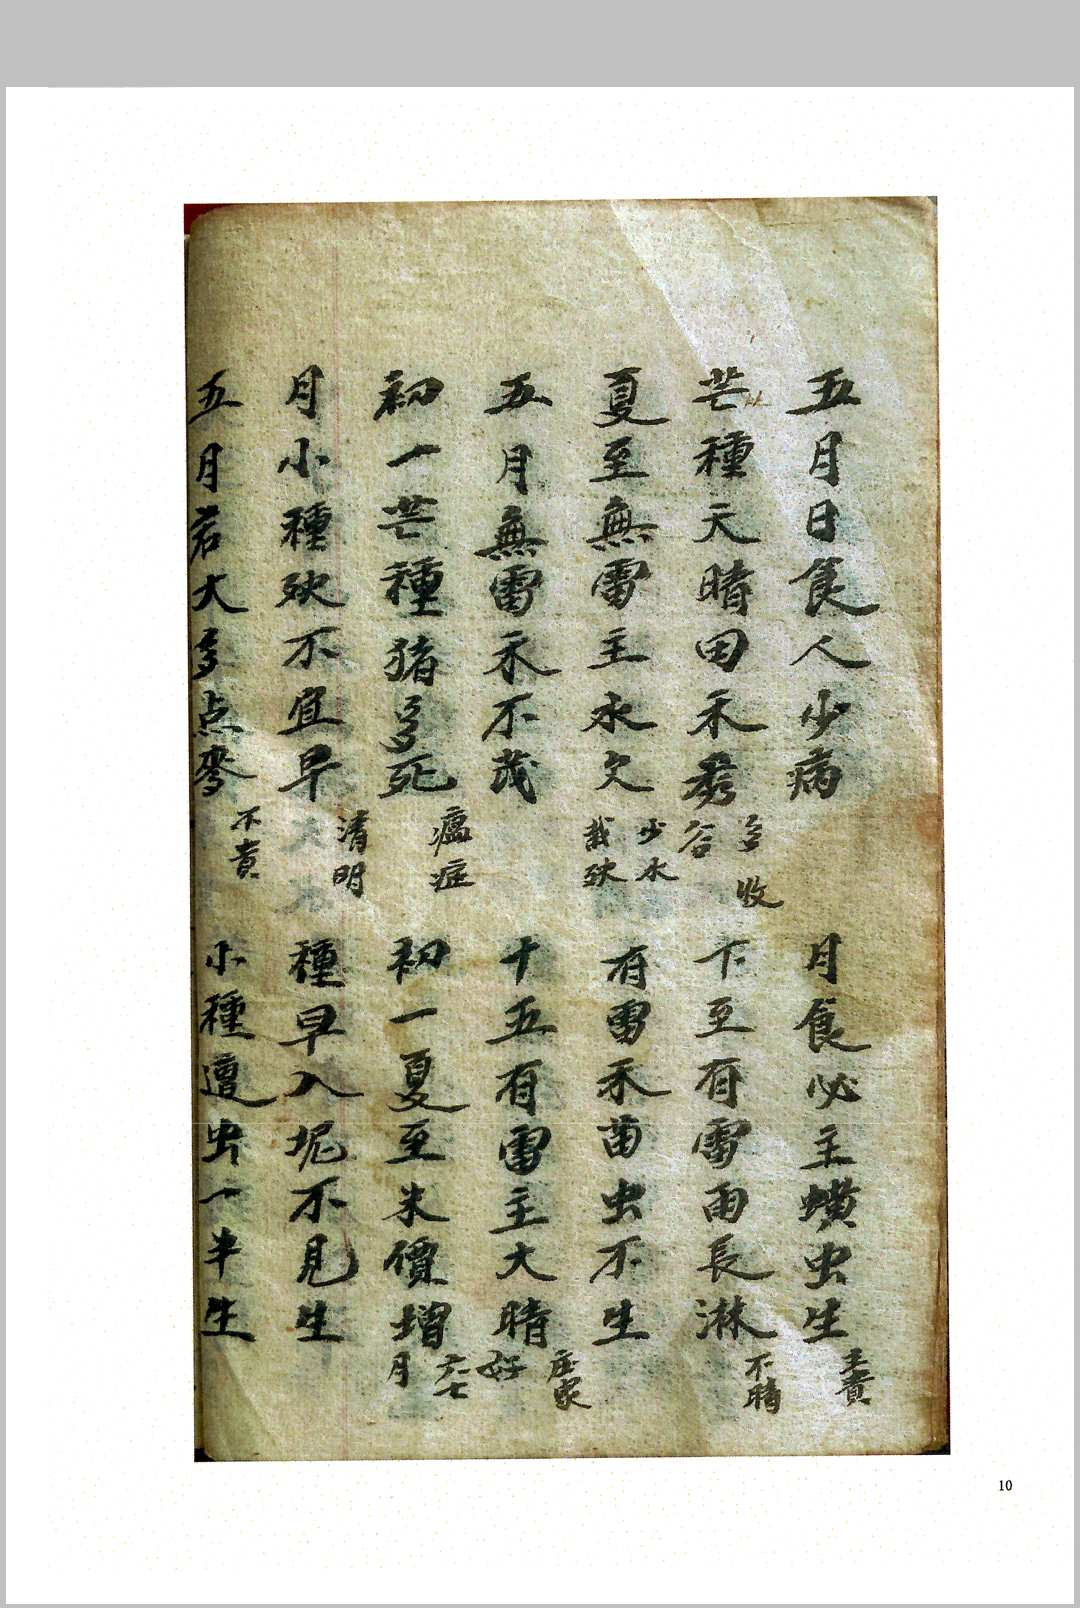 五月日食人少病　月食必主蟥虫生 主貴
芒種天晴田禾秀 多收谷　下至有雷雨長淋 不晴
夏至無雷主水欠 少水栽殃　有雷禾苗虫不生
五月無雷禾不茂　十五有雷主大晴 庄家好
初一芒種猪多死 瘟症　初一夏至米價增 六七月
月小種殃不宜早 清明　種早入坭不見生
五月若大多点麥 不貴　小種遭虫一半生
10